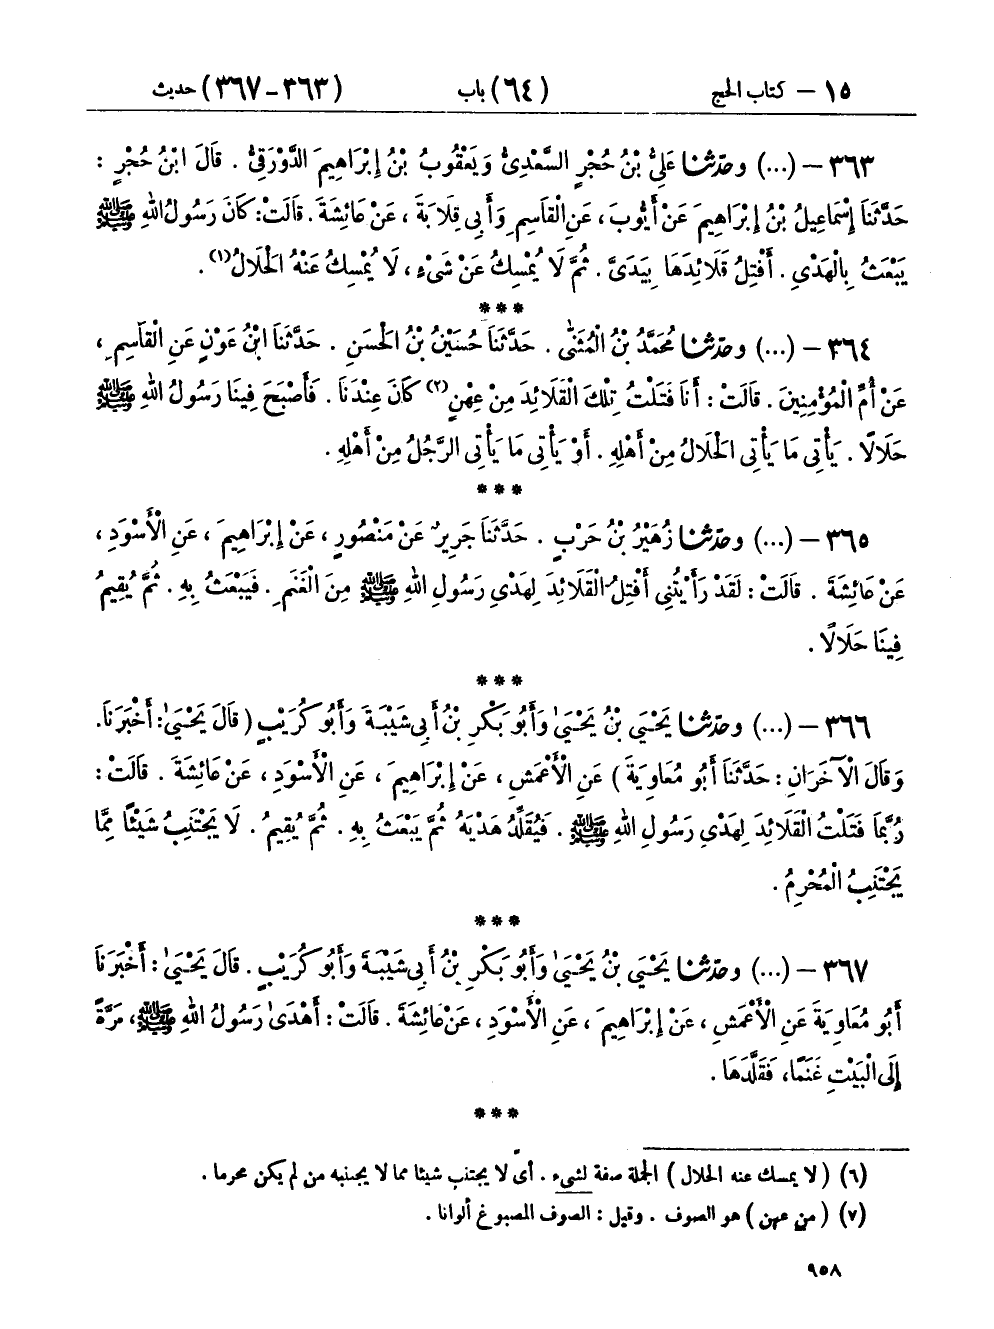 ١٥ – كتاب الحج (٦٤) باب (٣٦٣-٣٦٧) حديث
٣٦٣ – (...) وحدّثنا عَلِيُّ بْنُ حُجْرٍ السَّعْدِيُّ وَيَعْقُوبُ بْنُ إِبْرَاهِيمَ الدَّوْرَقِيُّ . قَالَ ابْنُ حُجْرٍ :
حَدَّثَنَا إِسْمَاعِيلُ بْنُ إِبْرَاهِيمَ عَنْ أَيُّوبَ ، عَنِ الْقَاسِمِ وَأَبِي قِلَابَةَ ، عَنْ عَائِشَةَ . قَالَتْ: كَانَ رَسُولُ اللهِ ﷺ
يَبْعَثُ بِالْهَدْيِ . أَفْتِلُ قَلَائِدَهَا بِيَدَىَّ . ثُمَّ لَا يُمْسِكُ عَنْ شَيْءٍ ، لَا يُمْسِكُ عَنْهُ الْحَلَالُ(١) .
* * *
٣٦٤ – (...) وحدّثنا مُحَمَّدُ بْنُ الْمُثَنَّى . حَدَّثَنَا حُسَيْنُ بْنُ الْحَسَنِ . حَدَّثَنَا ابْنُ عَوْنٍ عَنِ الْقَاسِمِ ،
عَنْ أُمِّ الْمُؤْمِنِينَ . قَالَتْ : أَنَا فَتَلْتُ تِلْكَ الْقَلَائِدَ مِنْ عِهْنٍ(٢) كَانَ عِنْدَنَا . فَأَصْبَحَ فِينَا رَسُولُ اللهِ ﷺ
حَلَالًا . يَأْتِي مَا يَأْتِي الْحَلَالُ مِنْ أَهْلِهِ . أَوْ يَأْتِي مَا يَأْتِي الرَّجُلُ مِنْ أَهْلِهِ .
* * *
٣٦٥ – (...) وحدّثنا زُهَيْرُ بْنُ حَرْبٍ . حَدَّثَنَا جَرِيرٌ عَنْ مَنْصُورٍ ، عَنْ إِبْرَاهِيمَ ، عَنِ الْأَسْوَدِ ،
عَنْ عَائِشَةَ . قَالَتْ : لَقَدْ رَأَيْتُنِي أَفْتِلُ الْقَلَائِدَ لِهَدْيِ رَسُولِ اللهِ ﷺ مِنَ الْغَنَمِ . فَيَبْعَثُ بِهِ . ثُمَّ يُقِيمُ
فِينَا حَلَالًا .
* * *
٣٦٦ – (...) وحدّثنا يَحْيَى بْنُ يَحْيَىٰ وَأَبُو بَكْرِ بْنُ أَبِي شَيْبَةَ وَأَبُو كُرَيْبٍ ( قَالَ يَحْيَىٰ : أَخْبَرَنَا .
وَقَالَ الْآخَرَانِ : حَدَّثَنَا أَبُو مُعَاوِيَةَ ) عَنِ الْأَعْمَشِ ، عَنْ إِبْرَاهِيمَ ، عَنِ الْأَسْوَدِ ، عَنْ عَائِشَةَ . قَالَتْ :
رُبَّمَا فَتَلْتُ الْقَلَائِدَ لِهَدْيِ رَسُولِ اللهِ ﷺ . فَيُقَلِّدُ هَدْيَهُ ثُمَّ يَبْعَثُ بِهِ . ثُمَّ يُقِيمُ . لَا يَجْتَنِبُ شَيْئًا مِمَّا
يَجْتَنِبُ الْمُحْرِمُ .
* * *
٣٦٧ – (...) وحدّثنا يَحْيَى بْنُ يَحْيَىٰ وَأَبُو بَكْرِ بْنُ أَبِي شَيْبَةَ وَأَبُو كُرَيْبٍ . قَالَ يَحْيَىٰ : أَخْبَرَنَا
أَبُو مُعَاوِيَةَ عَنِ الْأَعْمَشِ ، عَنْ إِبْرَاهِيمَ ، عَنِ الْأَسْوَدِ ، عَنْ عَائِشَةَ . قَالَتْ : أَهْدَىٰ رَسُولُ اللهِ ﷺ ، مَرَّةً
إِلَى الْبَيْتِ غَنَمًا، فَقَلَّدَهَا .
* * *
(٦) ( لا يمسك عنه الحلال ) الجملة صفة لشيء . أى لا يجتنب شيئا مما لا يجتنبه من لم يكن محرما .
(٧) ( من عهن ) هو الصوف . وقيل : الصوف المصبوغ ألوانا .
٩٥٨